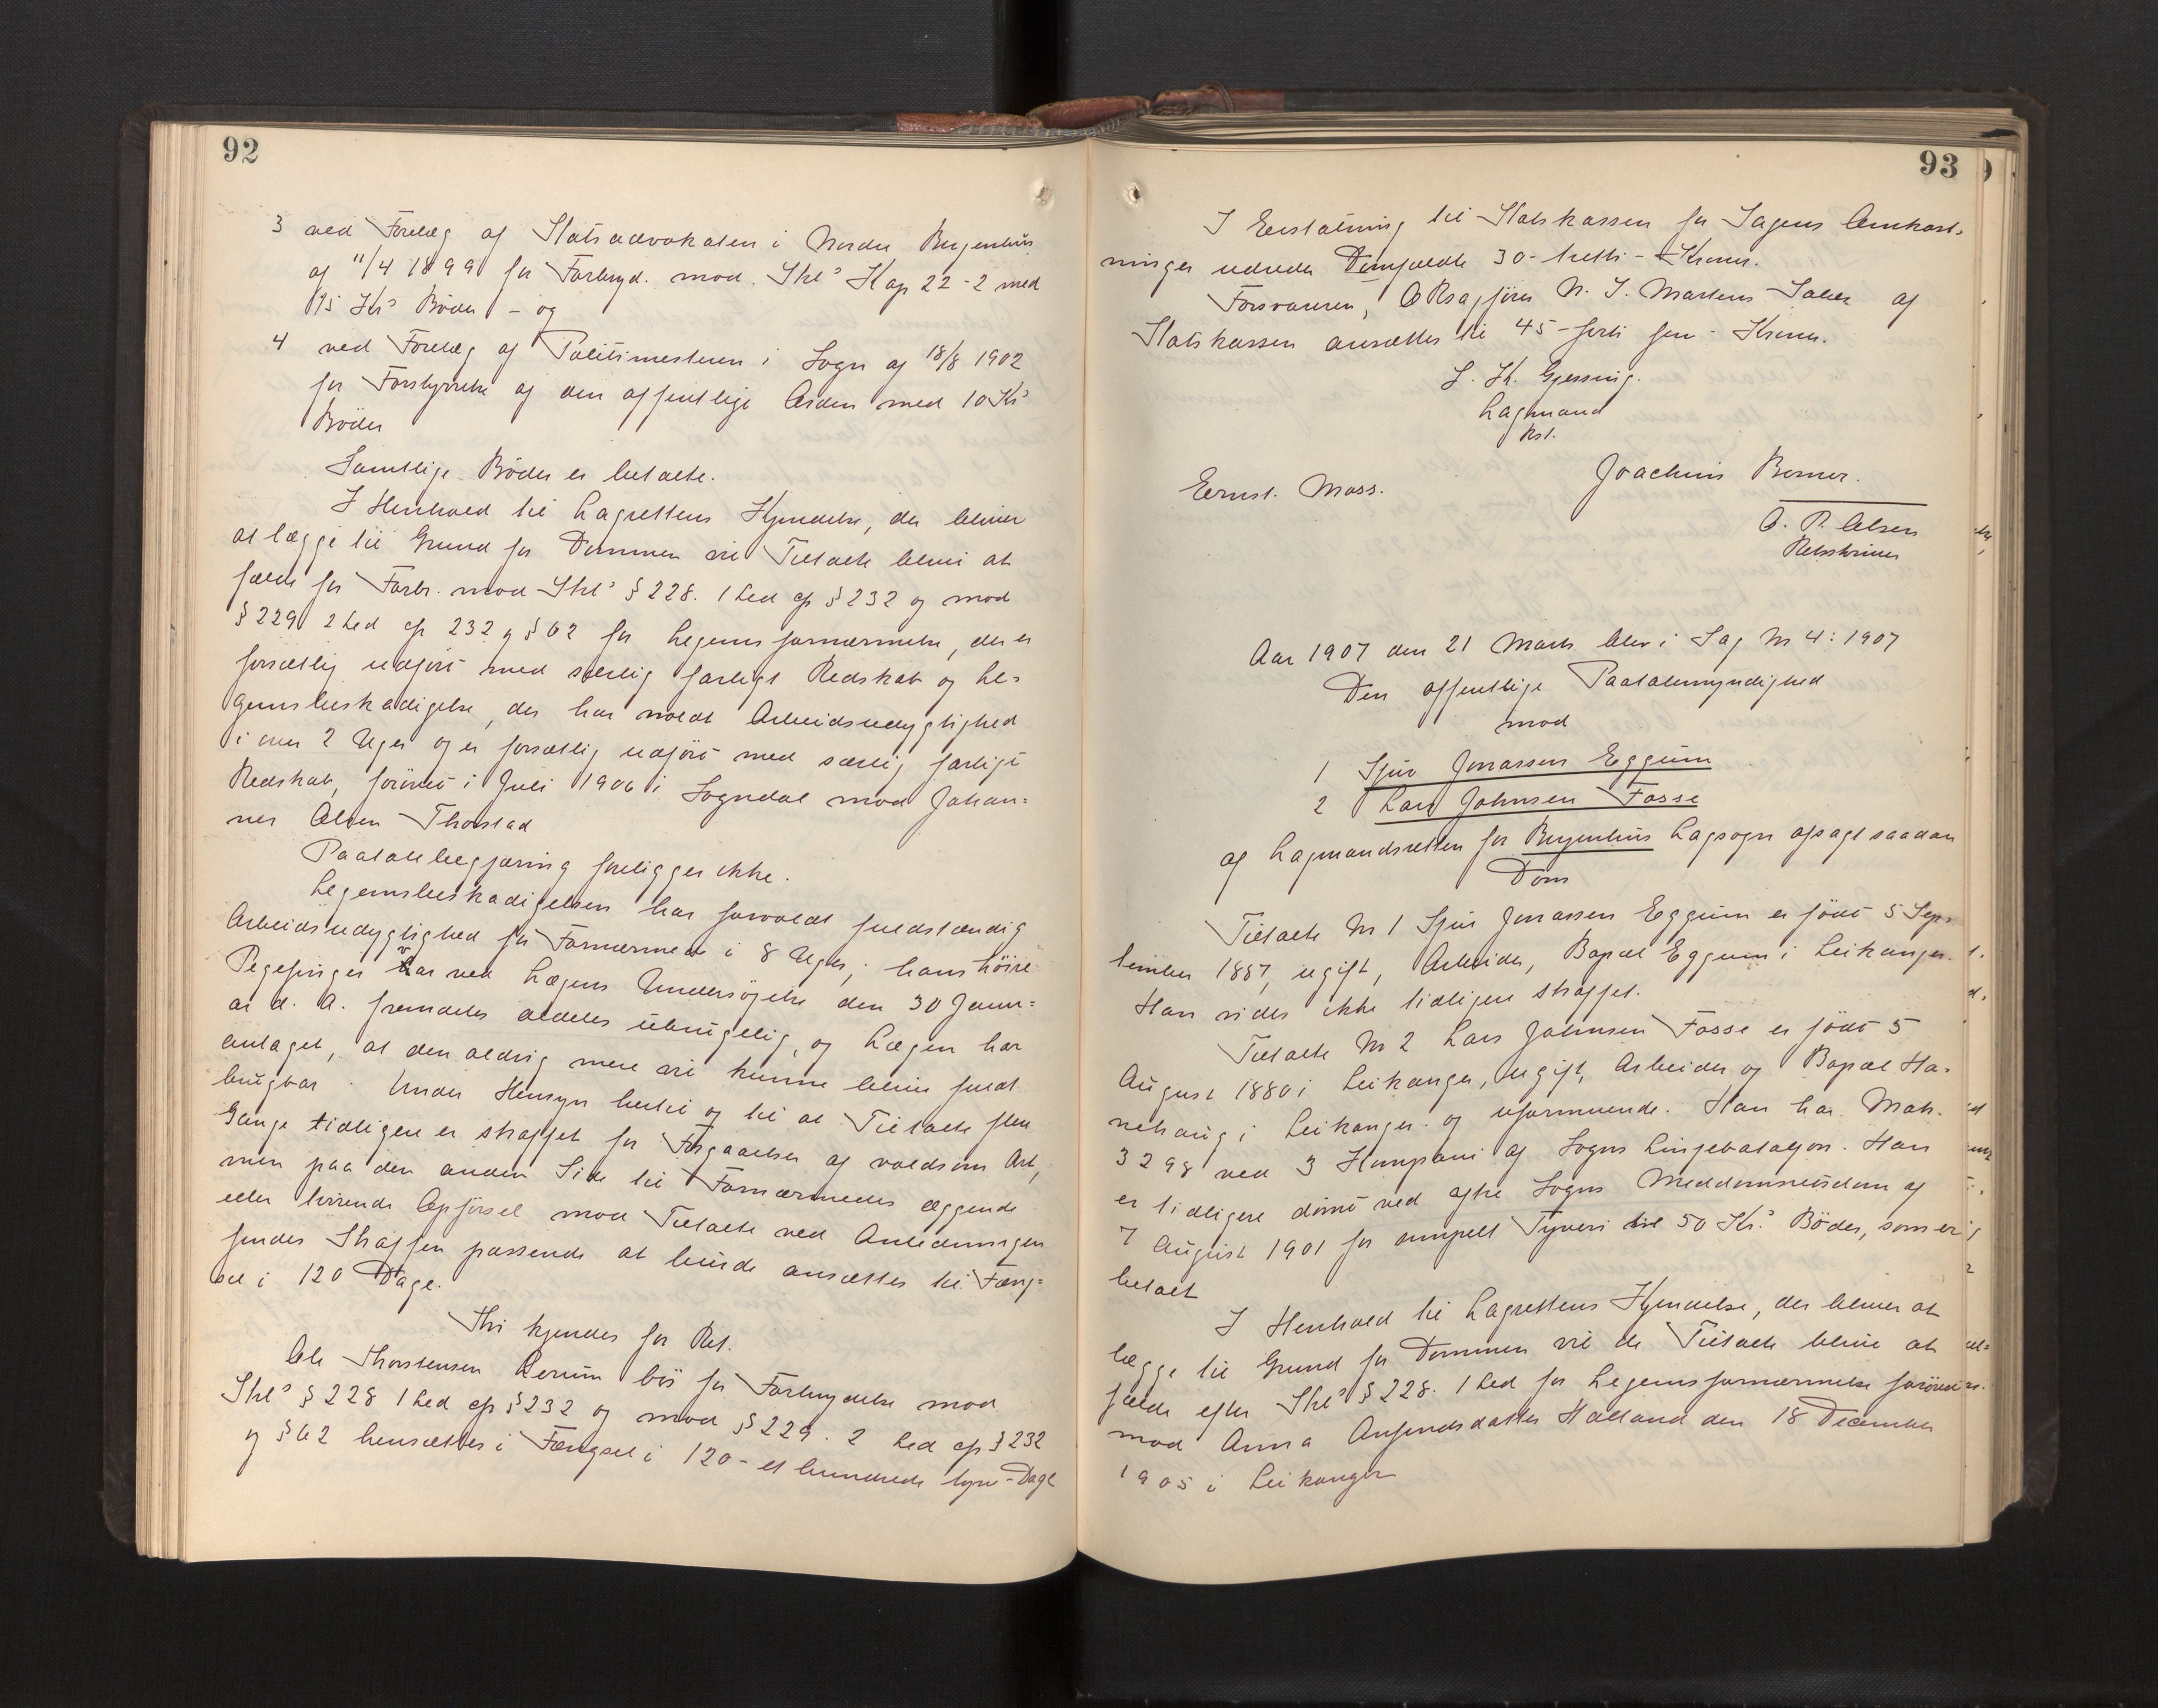 92
3 ved Forelæg af Statsadvokaten i Nordre Bergenhus
af 11/4 1899 for Forbryd. mod. Strl's Kap 22-2 med
15 Kr's Bøder - og
4 ved Forelæg af Politimesteren i Sogn af 18/8 1902
for Forstyrrelse af den offentlige Orden med 10 Kr's
Bøder
Samtlige Bøder er betalte.
I Henhold til Lagrettens Kjendelse, der bliver
at lægge til Grund for Dommen vil Tiltalte blive at
fælde for Forbr. mod Strl's § 228. 1 Led cfr § 232 og mod
§ 229 2 Led cfr 232 og § 62 for Legemsfornærmelse, der er
forsætlig udført med særlig farligt Redskab og Le-
gemsbeskadigelse, der har voldt Arbeidsudygtighed
i over 2 Uger og er forsætlig udført med særlig farligt
Redskab, forøvet i Juli 1906 i Sogndal mod Johan-
nes Olsen Thorstad
Paatalebegjæring foreligger ikke.
Legemsbeskadigelsen har forvoldt fuldstændig
Arbeidsudygtighed for Fornærmede i 8 Uger, hans høire
Pegefinger var ved Lægens Undersøgelse den 30 Janu-
ar d. A. fremdeles aldeles ubrugelig, og Lægen har
antaget, at den aldrig mere vil kunne blive fuldt
brugbar. Under Hensyn hertil og til at Tiltalte flere
Gange tidligere er straffet for Forgaaelser af voldsom Art,
men paa den anden Side til Fornærmedes æggende
eller tirrende Opførsel mod Tiltalte ved Anledningen
findes Straffen passende at burde ansættes til Fæng-
sel i 120 Dage.
Thi kjendes for Ret.
Ole Thorstensen Lerum bør for Forbrydelse mod
Strl's § 228 1 Led cfr § 232 og mod § 229. 2 Led cfr § 232
og § 62 hensættes i Fængsel i 120 - et hundrede tyve - Dage
93
I Erstatning til Statskassen for Sagens Omkost-
ninger udreder Domfældte 30 - tretti - Kroner.
Forsvareren, ORsagfører N. J. Martens Salær af
Statskassen ansættes til 45 - forti fem - Kroner.
S. Th. Gjessing.
Lagmand
kst.
Ernst. Moss.
Joachim Borner.
O. P. Olsen
Retsskriver
Aar 1907 den 21 Marts blev i Sag No 4: 1907
Den offentlige Paatalemyndighed
mod
1 Sjur Jonassen Eggum
2 Lars Johnsen Fosse
af Lagmandsretten for Bergenhus Lagsogn afsagt saadan
Dom
Tiltalte No 1 Sjur Jonassen Eggum er født 5 Sep-
tember 1887, ugift, Arbeider, Bopæl Eggum i Leikanger.
Han vides ikke tidligere straffet.
Tiltalte No 2 Lars Johnsen Fosse er født 5
August 1880 i Leikanger, ugift, Arbeider og Bopæl Ha-
nehaug i Leikanger og uformuende. Han har Matr.
3298 ved 3 Kompani af Sogns Linjebataljon. Han
er tidligere dømt ved ytre Sogns Meddomsretsdom af
7 August 1901 for simpelt Tyveri til 50 Kr's Bøder, som er
betalt
I Henhold til Lagrettens Kjendelse, der bliver at
lægge til Grund for Dommen vil de Tiltalte blive at
fælde efter Strl's § 228. 1 Led for Legemsfornærmelse forøvet
mod Anna Anfindsdatter Hatland den 18 December
1905 i Leikanger